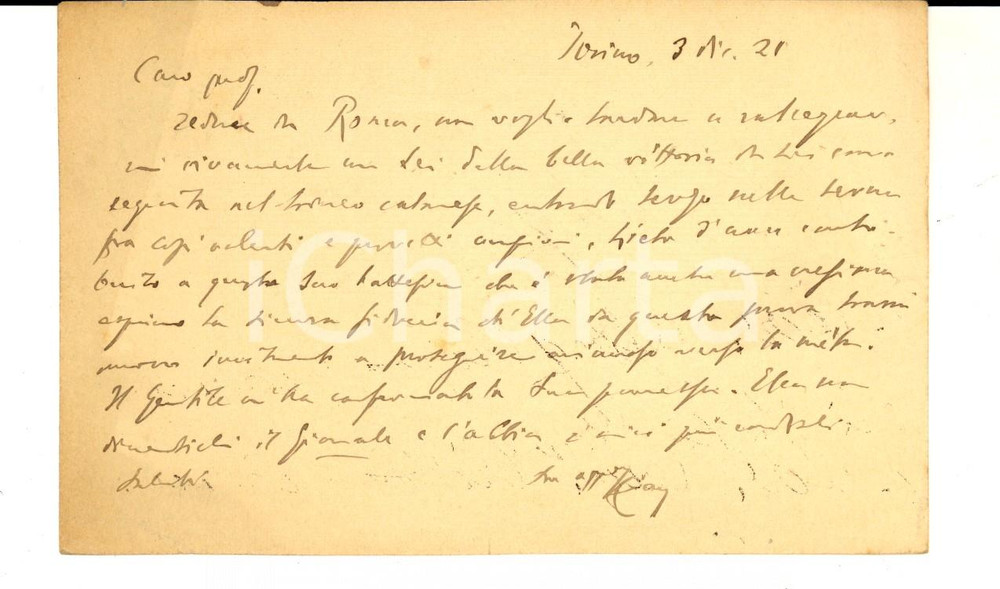 Torino, 3 dic. 21
Caro prof.
reduce da Roma, non voglio tardare a rallegrar-
mi vivamente con Lei della bella vittoria da Lei conse-
guita nel torneo catanese, entrando terzo nella terna
fra copi valenti e provetti campioni. Lieto d'aver contri-
buito a questo Suo battesimo che è stata anche una
esprimo la sicura fiducia ch'Ella da questa prova trarrà
nuovo incitamento a proseguire animoso verso la mèta.
Il Gentile mi ha confermato la Sua promessa. Ella non
dimentichi il Giornale e l'abbia i miei più cordiali
saluti.
Suo aff
iCharta